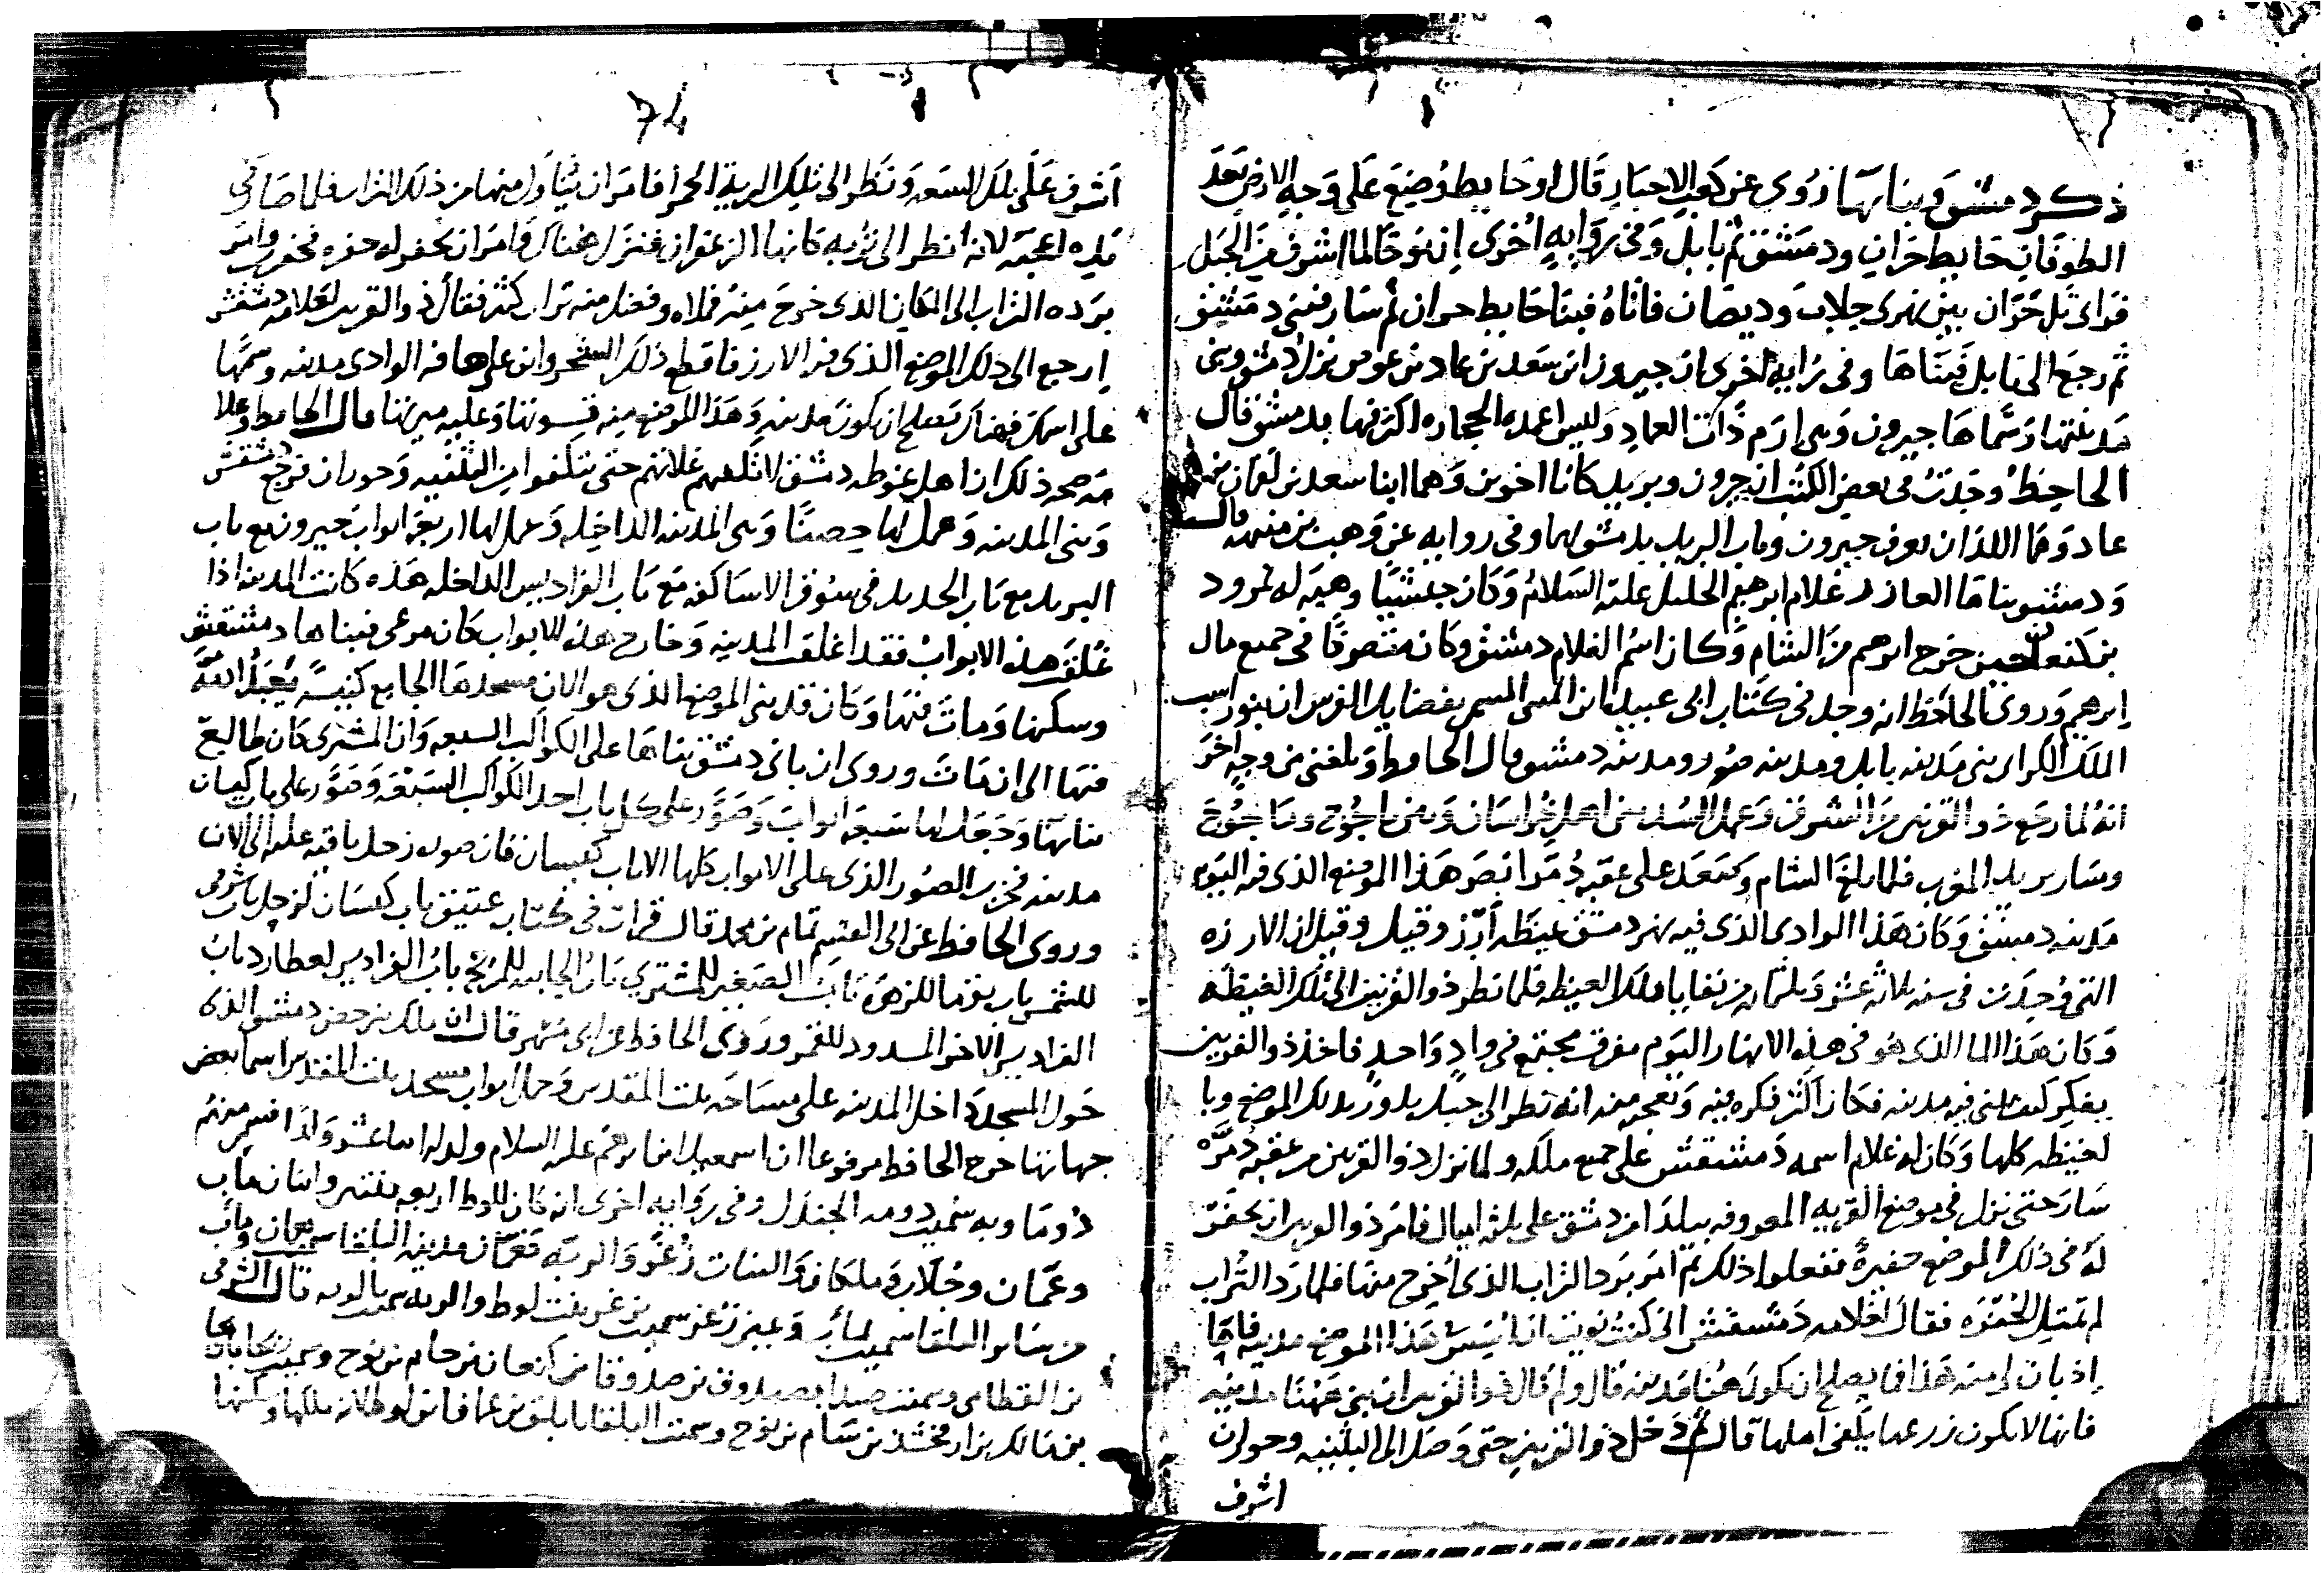 ذكر دمشق وبنائها روي عن كعب الاحبار قال اول حايط وضع على وجه الارض بعد
الطوفان حايط حران ودمشق ثم بابل وفي رواية اخرى ان نوحا لما اشرف من الجبل
فراى تل حران بين نهرى جلاب وديصان فاتاه فبنا حايط حران ثم سار فبنى دمشق
ثم رجع الى بابل فبناها وفي رواية اخرى ان جيرون ابن سعد بن عاد بن عوص نزل دمشق وبنى
مدينتها وسماها جيرون وهى ارم ذات العماد وليس اعمده الحجاره اكثر منها بدمشق قال
الحافظ وجدت في بعض الكتب ان جيرون وبريد كانا اخوين وهما ابنا سعد بن لقمن بن
عاد وهما اللذان يعرف جيرون وباب البريد بدمشق بهما وفي روايه عن وهب بن منبه قال
ودمشق بناها العازر غلام ابرهيم الخليل عليه السلام وكان حبشيا وهبه له نمرود
بن كنعان حين خرج ابرهيم من الشام وكان اسم الغلام دمشق وكان متصرفا في جميع مال
ابرهيم وروى الحافظ انه وجد في كتاب ابي عبيده ابن المثنى المسمى بفضايل الفرس ان بيوراسب
الملك الكرا بنى مدينه بابل ومدينه صور ومدينه دمشق قال الحافظ وبلغني من وجه اخر
انه لما رجع ذو القرنين من الشرق وعمل السد بين اهل خراسان وبين ياجوج وماجوج
وسار يريد المغرب فلما بلغ الشام وصعد على عقبه دمر ابصر هذا الموضع الذى فيه اليوم
مدينه دمشق وكان هذا الوادى الذى فيه نهر دمشق غيظه ارز وقيل وقيل ان الارزه
التي وجدت في سنه ثلاثه عشر وثلثمايه من بقايا تلك الغيظه فلما نظر ذو القرنين الى تلك الغيظه
وكان هذا الما الذى هو في هذه الانهار اليوم مفرق مجتمع في واد واحد فاخذ ذو القرنين
يفكر كيف يبنى فيه مدينه فكان اكثر فكره فيه وتعجبه منه انه نظر الى جبل يدور بذلك الموضع وبا
لغيظه كلها وكان له غلام اسمه دمشقش على جميع ملكه ولما نزل ذو القرنين من عقبه دمره
سار حتى نزل في موضع القريه المعروفه بيلدا من دمشق على ثلثه اميال فامر ذو القرنين ان يحفر
له في ذلك الموضع حفيرة ففعلوا ذلك ثم امر برد التراب الذى اخرج منها فلما رد التراب
لم تمتلي الحفره فقال لغلامه دمشقش انى كنت نويت ان اسس هذا الموضع مدينه فاما
اذ بان لى منه هذا فما يصلح ان يكون هنا مدينه قال ولم قال ذو القرنين ان بنى ههنا مدينه
فانها لا يكون زرعها يكفى اهلها قال ثم دخل ذو القرنين حتى وصل الى البثنيه وحوران
اشرف
74
اشرف على تلك السعه ونظر الى تلك التربة الحمرا فامر ان يناول منها من ذلك التراب فلما صار في
يده اعجبه لانه نظر الى تربه كانها الزعفران فنزل هناك وامر ان يحفر له حفره فحفرت وامر
برده التراب الى المكان الذى خرج منه فملاه وفضل منه تراب كثير فقال ذو القرنين لغلامه دمشقش
ارجع الى ذلك الموضع الذى فيه الارز فاقطع ذلك الشجر وابن على حافه الوادى مدينه وسمها
على اسمك فهناك يصلح ان يكون مدينه وهذا الموضع منه قوتها وعليه ميرتها قال الحافظ وعلا
مه صحه ذلك ان اهل غوطه دمشق لا تكفيهم غلاتهم حتى يتكلفوا من البثنيه وحوران فرجع دمشقش
وبنى المدينه وعمل لها حصنا وهى المدينه الداخله وعمل لها اربعة ابواب جيرون مع باب
البريد مع باب الحديد في سوق الاساكفه مع باب الفراديس الداخله هذه كانت المدينه اذا
غلقت هذه الابواب فقد اغلقت المدينه وخارج هذه الابواب كان مرعى فبناها دمشقش
وسكنها ومات فيها وكان قد بنى الموضع الذى هو الان مسجدها الجامع كنيسة يعبد الله
فيها الى ان مات وروى ان بانى دمشق بناها على الكواكب السبعه وان المشترى كان طالع
بنائها وجعل لها سبعه ابواب وصور على كل باب احد الكواكب السبعه وصور على باب كيسان
مدينه فخربت الصور الذى على الابواب كلها الا باب كيسان فان صوره زحل باقيه عليه الى الان
وروى الحافظ عن ابى القسم تمام بن محمد قال قرات في كتاب عتيق باب كيسان لزحل باب شرقي
للشمس باب توما للزهره باب الصغير للمشترى باب الجابيه للمريخ باب الفراديس لعطارد باب
الفراديس الاخر المسدود للقمر وروى الحافظ عن ابى مسهر قال ان ملك بنى حصن دمشق الذى
حول المسجد داخل المدينه على مساحه بيت المقدس وحمل ابواب مسجد بيت المقدس اسما بعض
جهاتها خرج الحافظ مرفوعا ان اسمعيل ابن ابرهيم عليه السلام ولد له اثنا عشر ولدا فسمى منهم
دوما وبه سميت دومه الجندل وفي روايه اخرى انه كان للوط اربعه بنين وابنتان ماب
وعمان وجلان وملكان والبنات زغر والربه فعمان مدينه البلقا سميت بعمان وماب
من ساير البلقا سميت بماب وعين زغر سميت بزغر بنت لوط والربه سميت بالربه قال الشرقى
بن القطامى وسميت صيدا بصيدون بن صدوقا بن كنعان بن حام بن نوح وسميت
بن مالك بن ارفخشد بن سام بن نوح وسميت البلقا ببالق بن عمان بن لوط لانه ملكها وسكنها